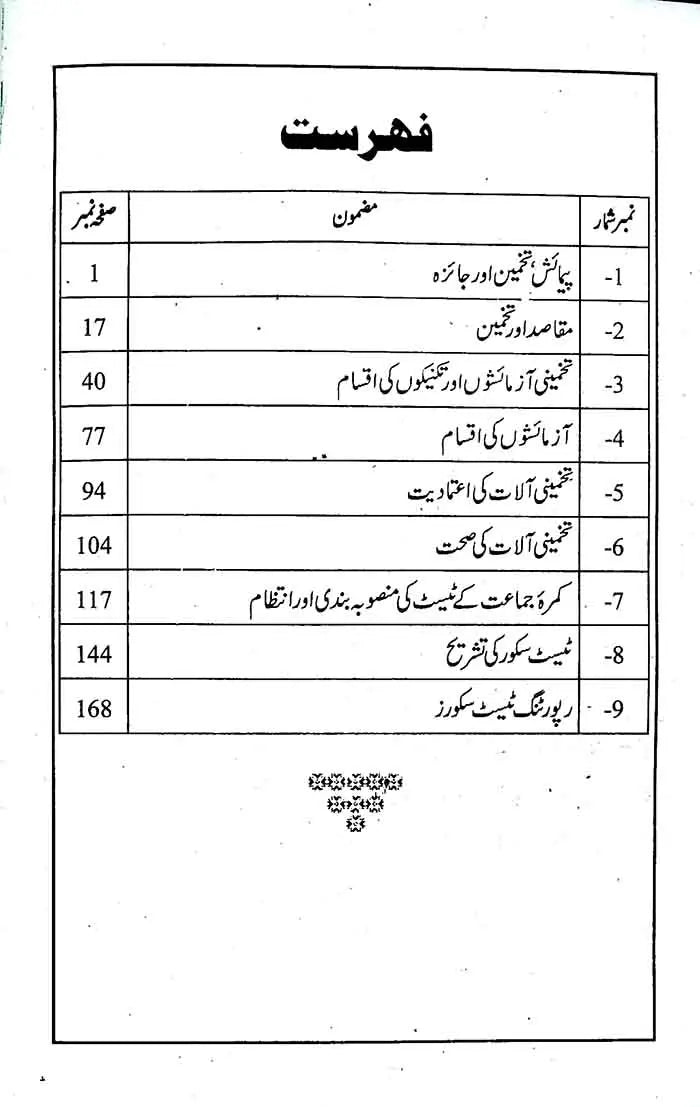 فہرست
نمبر شمار مضمون صفحہ نمبر
-1 پیمائش، تخمین اور جائزہ 1
-2 مقاصد اور تخمین 17
-3 تخمینی آزمائشوں اور تکنیکوں کی اقسام 40
-4 آزمائشوں کی اقسام 77
-5 تخمینی آلات کی اعتمادیت 94
-6 تخمینی آلات کی صحت 104
-7 کمرۂ جماعت کے ٹیسٹ کی منصوبہ بندی اور انتظام 117
-8 ٹیسٹ سکور کی تشریح 144
-9 رپورٹنگ ٹیسٹ سکورز 168